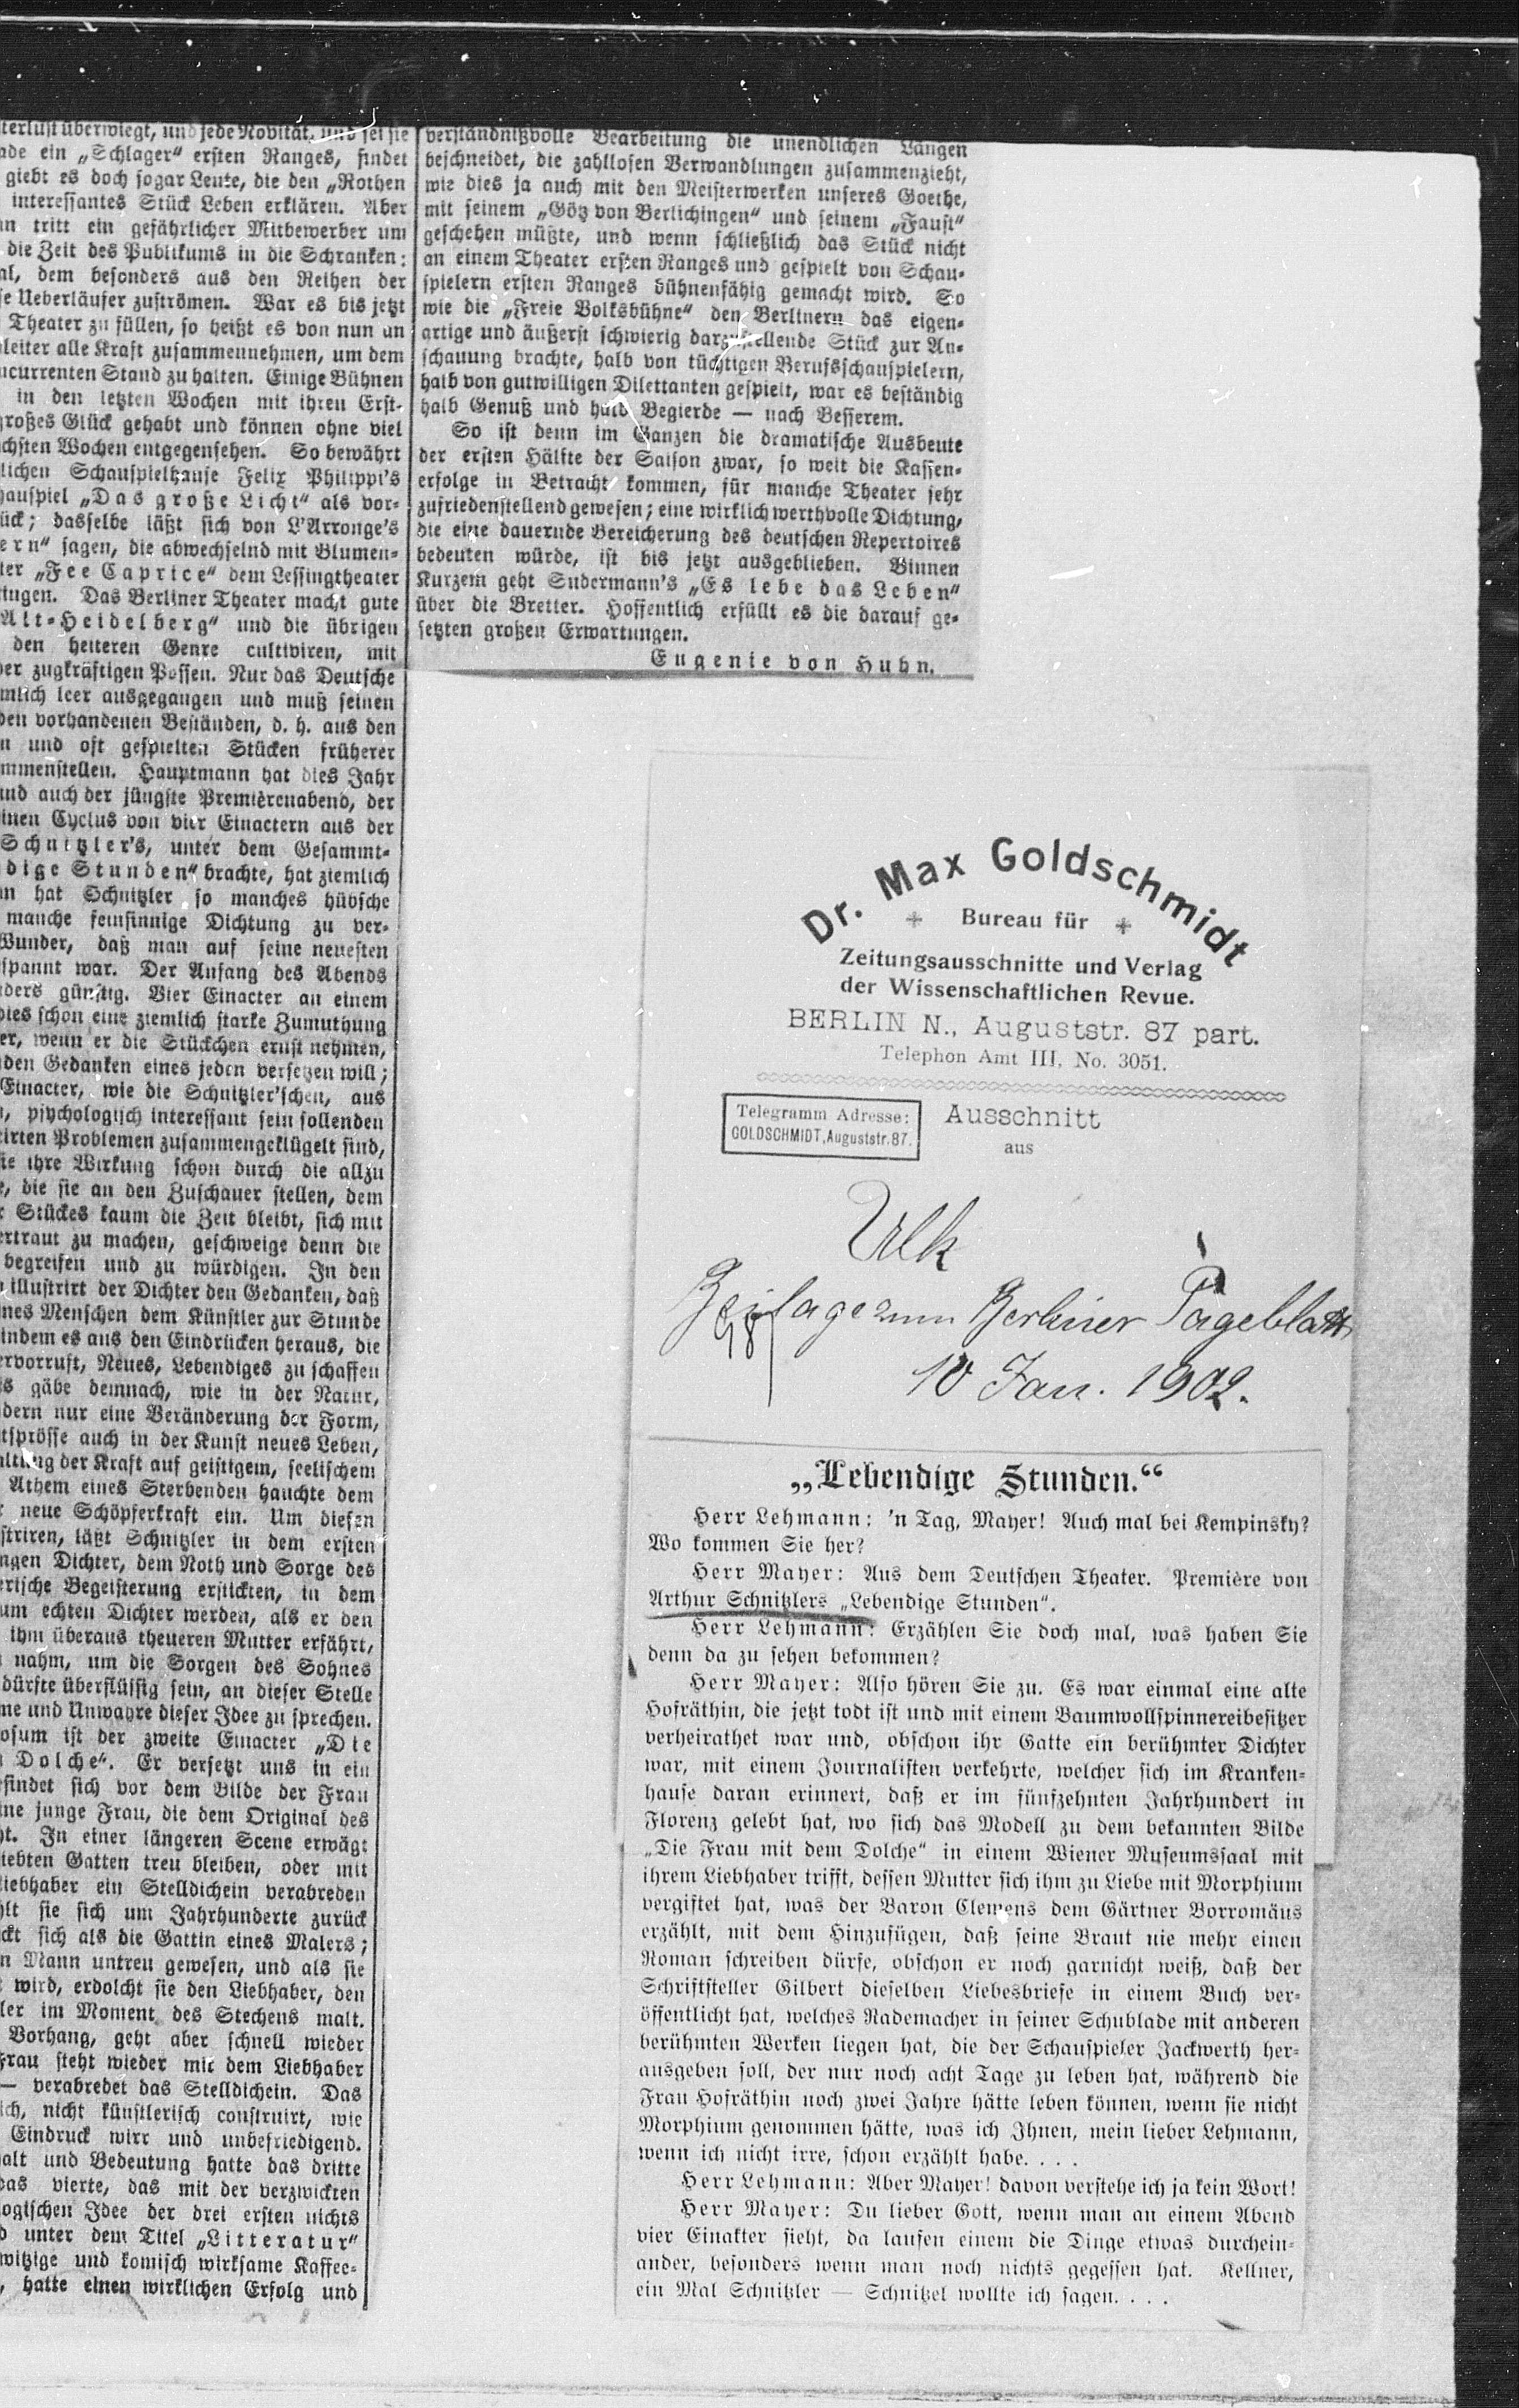 terlust überwiegt, und jede Novität, und sei sie
ade ein „Schlager“ ersten Ranges, findet
giebt es doch sogar Leute, die den „Rothen
interessantes Stück Leben erklären. Aber
nn tritt ein gefährlicher Mitbewerber um
die Zeit des Publikums in die Schranken:
al, dem besonders aus den Reihen der
se Ueberläufer zuströmen. War es bis jetzt
Theater zu füllen, so heißt es von nun an
leiter alle Kraft zusammennehmen, um dem
ncurrenten Stand zu halten. Einige Bühnen
in den letzten Wochen mit ihren Erst-
großes Glück gehabt und können ohne viel
chsten Wochen entgegensehen. So bewährt
lichen Schauspielhause Felix Philippi's
hauspiel „Das große Licht“ als vor-
ück; dasselbe läßt sich von L'Arronge's
ern“ sagen, die abwechselnd mit Blumen-
ter „Fee Caprice“ dem Lessingtheater
ingen. Das Berliner Theater macht gute
Alt-Heidelberg“ und die übrigen
den heiteren Genre cultiviren, mit
er zugkräftigen Possen. Nur das Deutsche
mlich leer ausgegangen und muß seinen
den vorhandenen Beständen, d. h. aus den
n und oft gespielten Stücken früherer
mmenstellen. Hauptmann hat dies Jahr
und auch der jüngste Premièrenabend, der
inen Cyclus von vier Einactern aus der
Schnitzler's, unter dem Gesammt-
dige Stunden“ brachte, hat ziemlich
nn hat Schnitzler so manches hübsche
manche feinsinnige Dichtung zu ver-
Wunder, daß man auf seine neuesten
spannt war. Der Anfang des Abends
ders günstig. Vier Einacter an einem
dies schon eine ziemlich starke Zumuthung
er, wenn er die Stückchen ernst nehmen,
den Gedanken eines jeden versetzen will;
Einacter, wie die Schnitzler'schen, aus
, psychologisch interessant sein sollenden
irten Problemen zusammengeklügelt sind,
ie ihre Wirkung schon durch die allzu
e, die sie an den Zuschauer stellen, dem
r Stückes kaum die Zeit bleibt, sich mit
ertraut zu machen, geschweige denn die
begreifen und zu würdigen. In den
illustrirt der Dichter den Gedanken, daß
nes Menschen dem Künstler zur Stunde
indem es aus den Eindrücken heraus, die
ervorruft, Neues, Lebendiges zu schaffen
s gäbe demnach, wie in der Natur,
dern nur eine Veränderung der Form,
tsprösse auch in der Kunst neues Leben,
altung der Kraft auf geistigem, seelischem
Athem eines Sterbenden hauchte dem
neue Schöpferkraft ein. Um diesen
striren, läßt Schnitzler in dem ersten
ngen Dichter, dem Noth und Sorge des
erische Begeisterung erstickten, in dem
um echten Dichter werden, als er den
ihm überaus theueren Mutter erfährt,
nahm, um die Sorgen des Sohnes
dürfte überflüssig sein, an dieser Stelle
me und Unwahre dieser Idee zu sprechen.
osum ist der zweite Einacter „Die
Dolche“. Er versetzt uns in ein
findet sich vor dem Bilde der Frau
ne junge Frau, die dem Original des
ht. In einer längeren Scene erwägt
iebten Gatten treu bleiben, oder mit
iebhaber ein Stelldichein verabreden
hlt sie sich um Jahrhunderte zurück
ckt sich als die Gattin eines Malers;
n Mann untreu gewesen, und als sie
wird, erdolcht sie den Liebhaber, den
ler im Moment des Stechens malt.
Vorhang, geht aber schnell wieder
Frau steht wieder mit dem Liebhaber
— verabredet das Stelldichein. Das
ich, nicht künstlerisch construirt, wie
Eindruck wirr und unbefriedigend.
alt und Bedeutung hatte das dritte
das vierte, das mit der verzwickten
ogischen Idee der drei ersten nichts
d unter dem Titel „Litteratur“
witzige und komisch wirksame Kaffee-
, hatte einen wirklichen Erfolg und
verständnißvolle Bearbeitung die unendlichen Längen
beschneidet, die zahllosen Verwandlungen zusammenzieht,
wie dies ja auch mit den Meisterwerken unseres Goethe,
mit seinem „Götz von Berlichingen“ und seinem „Faust“
geschehen müßte, und wenn schließlich das Stück nicht
an einem Theater ersten Ranges und gespielt von Schau-
spielern ersten Ranges bühnenfähig gemacht wird. So
wie die „Freie Volksbühne“ den Berlinern das eigen-
artige und äußerst schwierig darzustellende Stück zur An-
schauung brachte, halb von tüchtigen Berufsschauspielern,
halb von gutwilligen Dilettanten gespielt, war es beständig
halb Genuß und halb Begierde — nach Besserem.
So ist denn im Ganzen die dramatische Ausbeute
der ersten Hälfte der Saison zwar, so weit die Kassen-
erfolge in Betracht kommen, für manche Theater sehr
zufriedenstellend gewesen; eine wirklich werthvolle Dichtung,
die eine dauernde Bereicherung des deutschen Repertoires
bedeuten würde, ist bis jetzt ausgeblieben. Binnen
Kurzem geht Sudermann's „Es lebe das Leben“
über die Bretter. Hoffentlich erfüllt es die darauf ge-
setzten großen Erwartungen.
Eugenie von Huhn.
Dr. Max Goldschmidt
Bureau für
Zeitungsausschnitte und Verlag
der Wissenschaftlichen Revue.
BERLIN N., Auguststr. 87 part.
Telephon Amt III, No. 3051.
Telegramm Adresse:
GOLDSCHMIDT, Auguststr. 87.
Ausschnitt
aus
Ulk
Beilage zum Berliner Tageblatt
98
10 Jan. 1902.
„Lebendige Stunden.“
Herr Lehmann: 'n Tag, Mayer! Auch mal bei Kempinsky?
Wo kommen Sie her?
Herr Mayer: Aus dem Deutschen Theater. Première von
Arthur Schnitzlers „Lebendige Stunden“.
Herr Lehmann: Erzählen Sie doch mal, was haben Sie
denn da zu sehen bekommen?
Herr Mayer: Also hören Sie zu. Es war einmal eine alte
Hofräthin, die jetzt todt ist und mit einem Baumwollspinnereibesitzer
verheirathet war und, obschon ihr Gatte ein berühmter Dichter
war, mit einem Journalisten verkehrte, welcher sich im Kranken-
hause daran erinnert, daß er im fünfzehnten Jahrhundert in
Florenz gelebt hat, wo sich das Modell zu dem bekannten Bilde
„Die Frau mit dem Dolche“ in einem Wiener Museumssaal mit
ihrem Liebhaber trifft, dessen Mutter sich ihm zu Liebe mit Morphium
vergiftet hat, was der Baron Clemens dem Gärtner Borromäus
erzählt, mit dem Hinzufügen, daß seine Braut nie mehr einen
Roman schreiben dürfe, obschon er noch garnicht weiß, daß der
Schriftsteller Gilbert dieselben Liebesbriefe in einem Buch ver-
öffentlicht hat, welches Rademacher in seiner Schublade mit anderen
berühmten Werken liegen hat, die der Schauspieler Jackwerth her-
ausgeben soll, der nur noch acht Tage zu leben hat, während die
Frau Hofräthin noch zwei Jahre hätte leben können, wenn sie nicht
Morphium genommen hätte, was ich Ihnen, mein lieber Lehmann,
wenn ich nicht irre, schon erzählt habe. . . .
Herr Lehmann: Aber Mayer! davon verstehe ich ja kein Wort!
Herr Mayer: Du lieber Gott, wenn man an einem Abend
vier Einakter sieht, da laufen einem die Dinge etwas durchein-
ander, besonders wenn man noch nichts gegessen hat. Kellner,
ein Mal Schnitzler — Schnitzel wollte ich sagen. . . .